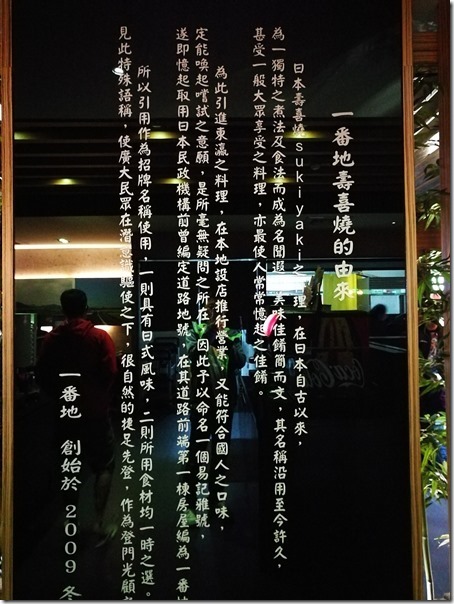 一番地壽喜燒的由來
日本壽喜燒sukiyaki之料理，在日本自古以來，
為一獨特之煮法及食法而成為名聞遐 美味佳餚簡而文，其名稱沿用至今許久，
甚受一般大眾享受之料理，亦最使人常常憶起之佳餚。
為此引進東瀛之料理，在本地設店推行營業 又能符合國人之口味，
定能喚起嚐試之意願，是所毫無疑問之所在 因此予以命名一個易記雅號，
遂即憶起取用日本民政機構前曾編定道路地號 在其道路前端第一棟房屋編為一番
所以引用作為招牌名稱使用，一則具有日式風味，二則所用食材均一時之選。
見此特殊語稱，使廣大民眾在潛意識驅使之下，很自然的捷足先登，作為登門光顧
一番地 創始於 2009 冬